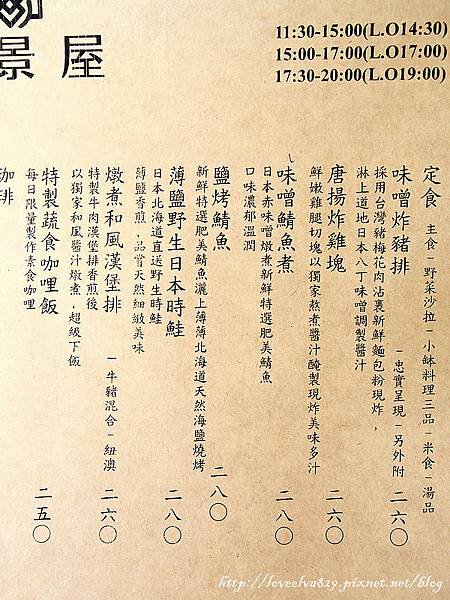 景屋
11:30-15:00(L.O14:30)
15:00-17:00(L.O17:00)
17:30-20:00(L.O19:00)
定食 主食-野菜沙拉-小缽料理三品-米食-湯品
味噌炸豬排 -忠實呈現-另外附 二六〇
採用台灣豬梅花肉沾裹新鮮麵包粉現炸，
淋上道地日本八丁味噌調製醬汁
唐揚炸雞塊 二六〇
鮮嫩雞腿切塊以獨家熬煮醬汁醃製現炸美味多汁
味噌鯖魚煮 二八〇
日本赤味噌燉煮新鮮特選肥美鯖魚
口味濃郁溫潤
鹽烤鯖魚 二八〇
新鮮特選肥美鯖魚灑上薄薄北海道天然海鹽燒烤
薄鹽野生日本時鮭 二八〇
日本北海道直送野生時鮭
薄鹽香煎，品嘗天然細緻美味
燉煮和風漢堡排 -牛豬混合-紐澳 二六〇
特製牛肉漢堡排香煎後
以獨家和風醬汁燉煮，超級下飯
特製蔬食咖哩飯 二五〇
每日限量製作素食咖哩
咖啡
http://loveelva829.pixnet.net/blog